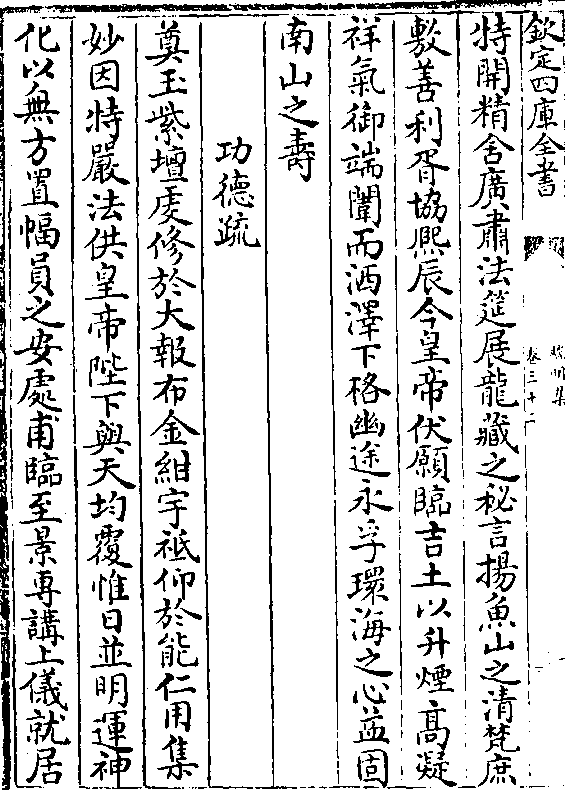 欽定四庫全書
卷三十二
特開精舍廣肅法筵展龍藏之秘言揚魚山之清梵庶
敷善利胥協熙辰今皇帝伏願臨吉土以升煙高凝
祥氣御端闈而洒澤下格幽途永孚環海之心益固
南山之壽
功德疏
奠玉紫壇虔修於大報布金紺宇祗仰於能仁用集
妙因特嚴法供皇帝陛下與天均覆惟日並明運神
化以無方置幅員之安處甫臨至景專講上儀就居